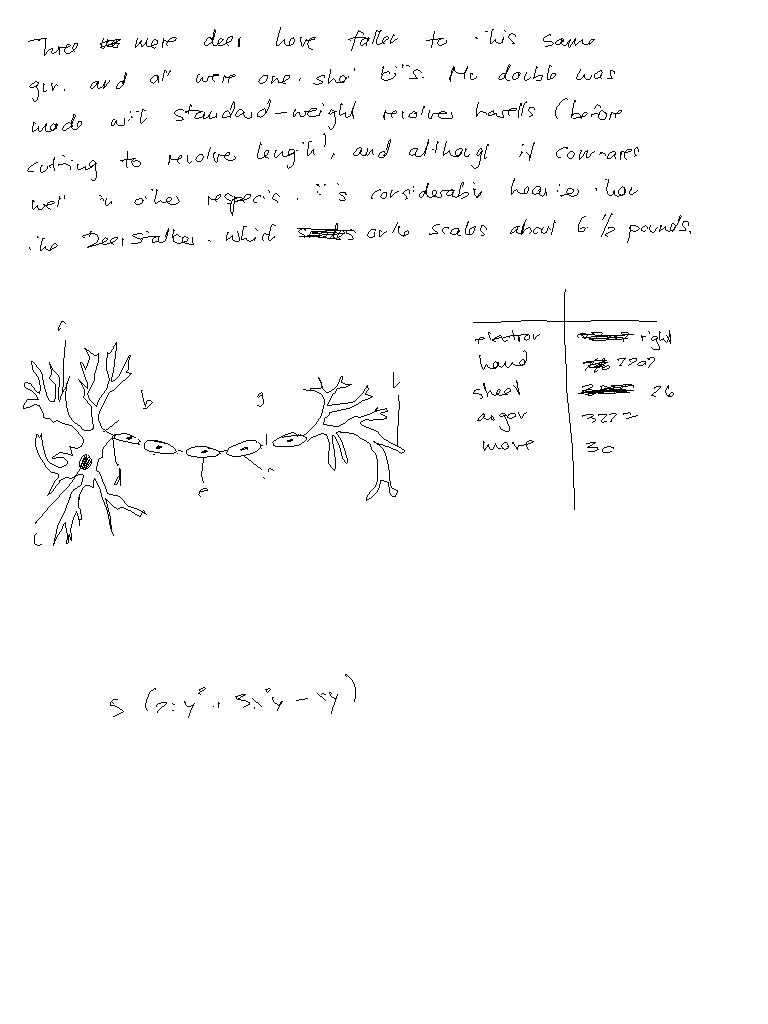 Three more deer have fallen to this same
gun, and all were one-shot kills. My double was
made with standard-weight revolver barrels (before
cutting to revolver length), and although it compares
well in other respects, it is considerably heavier than
the Deerstalker, which only scales about 6 1/2 pounds.
b g
d
e
right
hand 7707
sheet 26
move 30